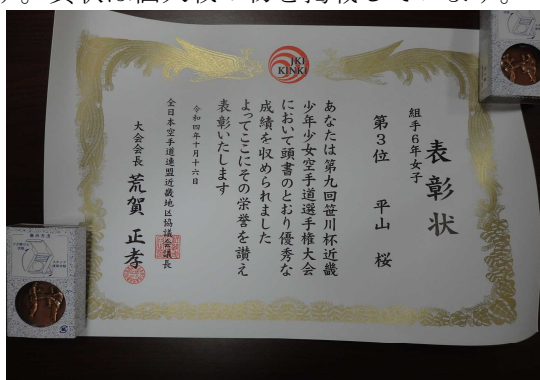 JKJ
KINKI
表彰状
組手6年女子
第3位 平山 桜
あなたは第九回笹川杯近畿
少年少女空手道選手権大会
において頭書のとおり優秀な
成績を収められました
よってここにその栄誉を讃え
表彰いたします
令和四年十月十六日
全日本空手道連盟近畿地区協議会議長
大会会長 荒賀 正孝